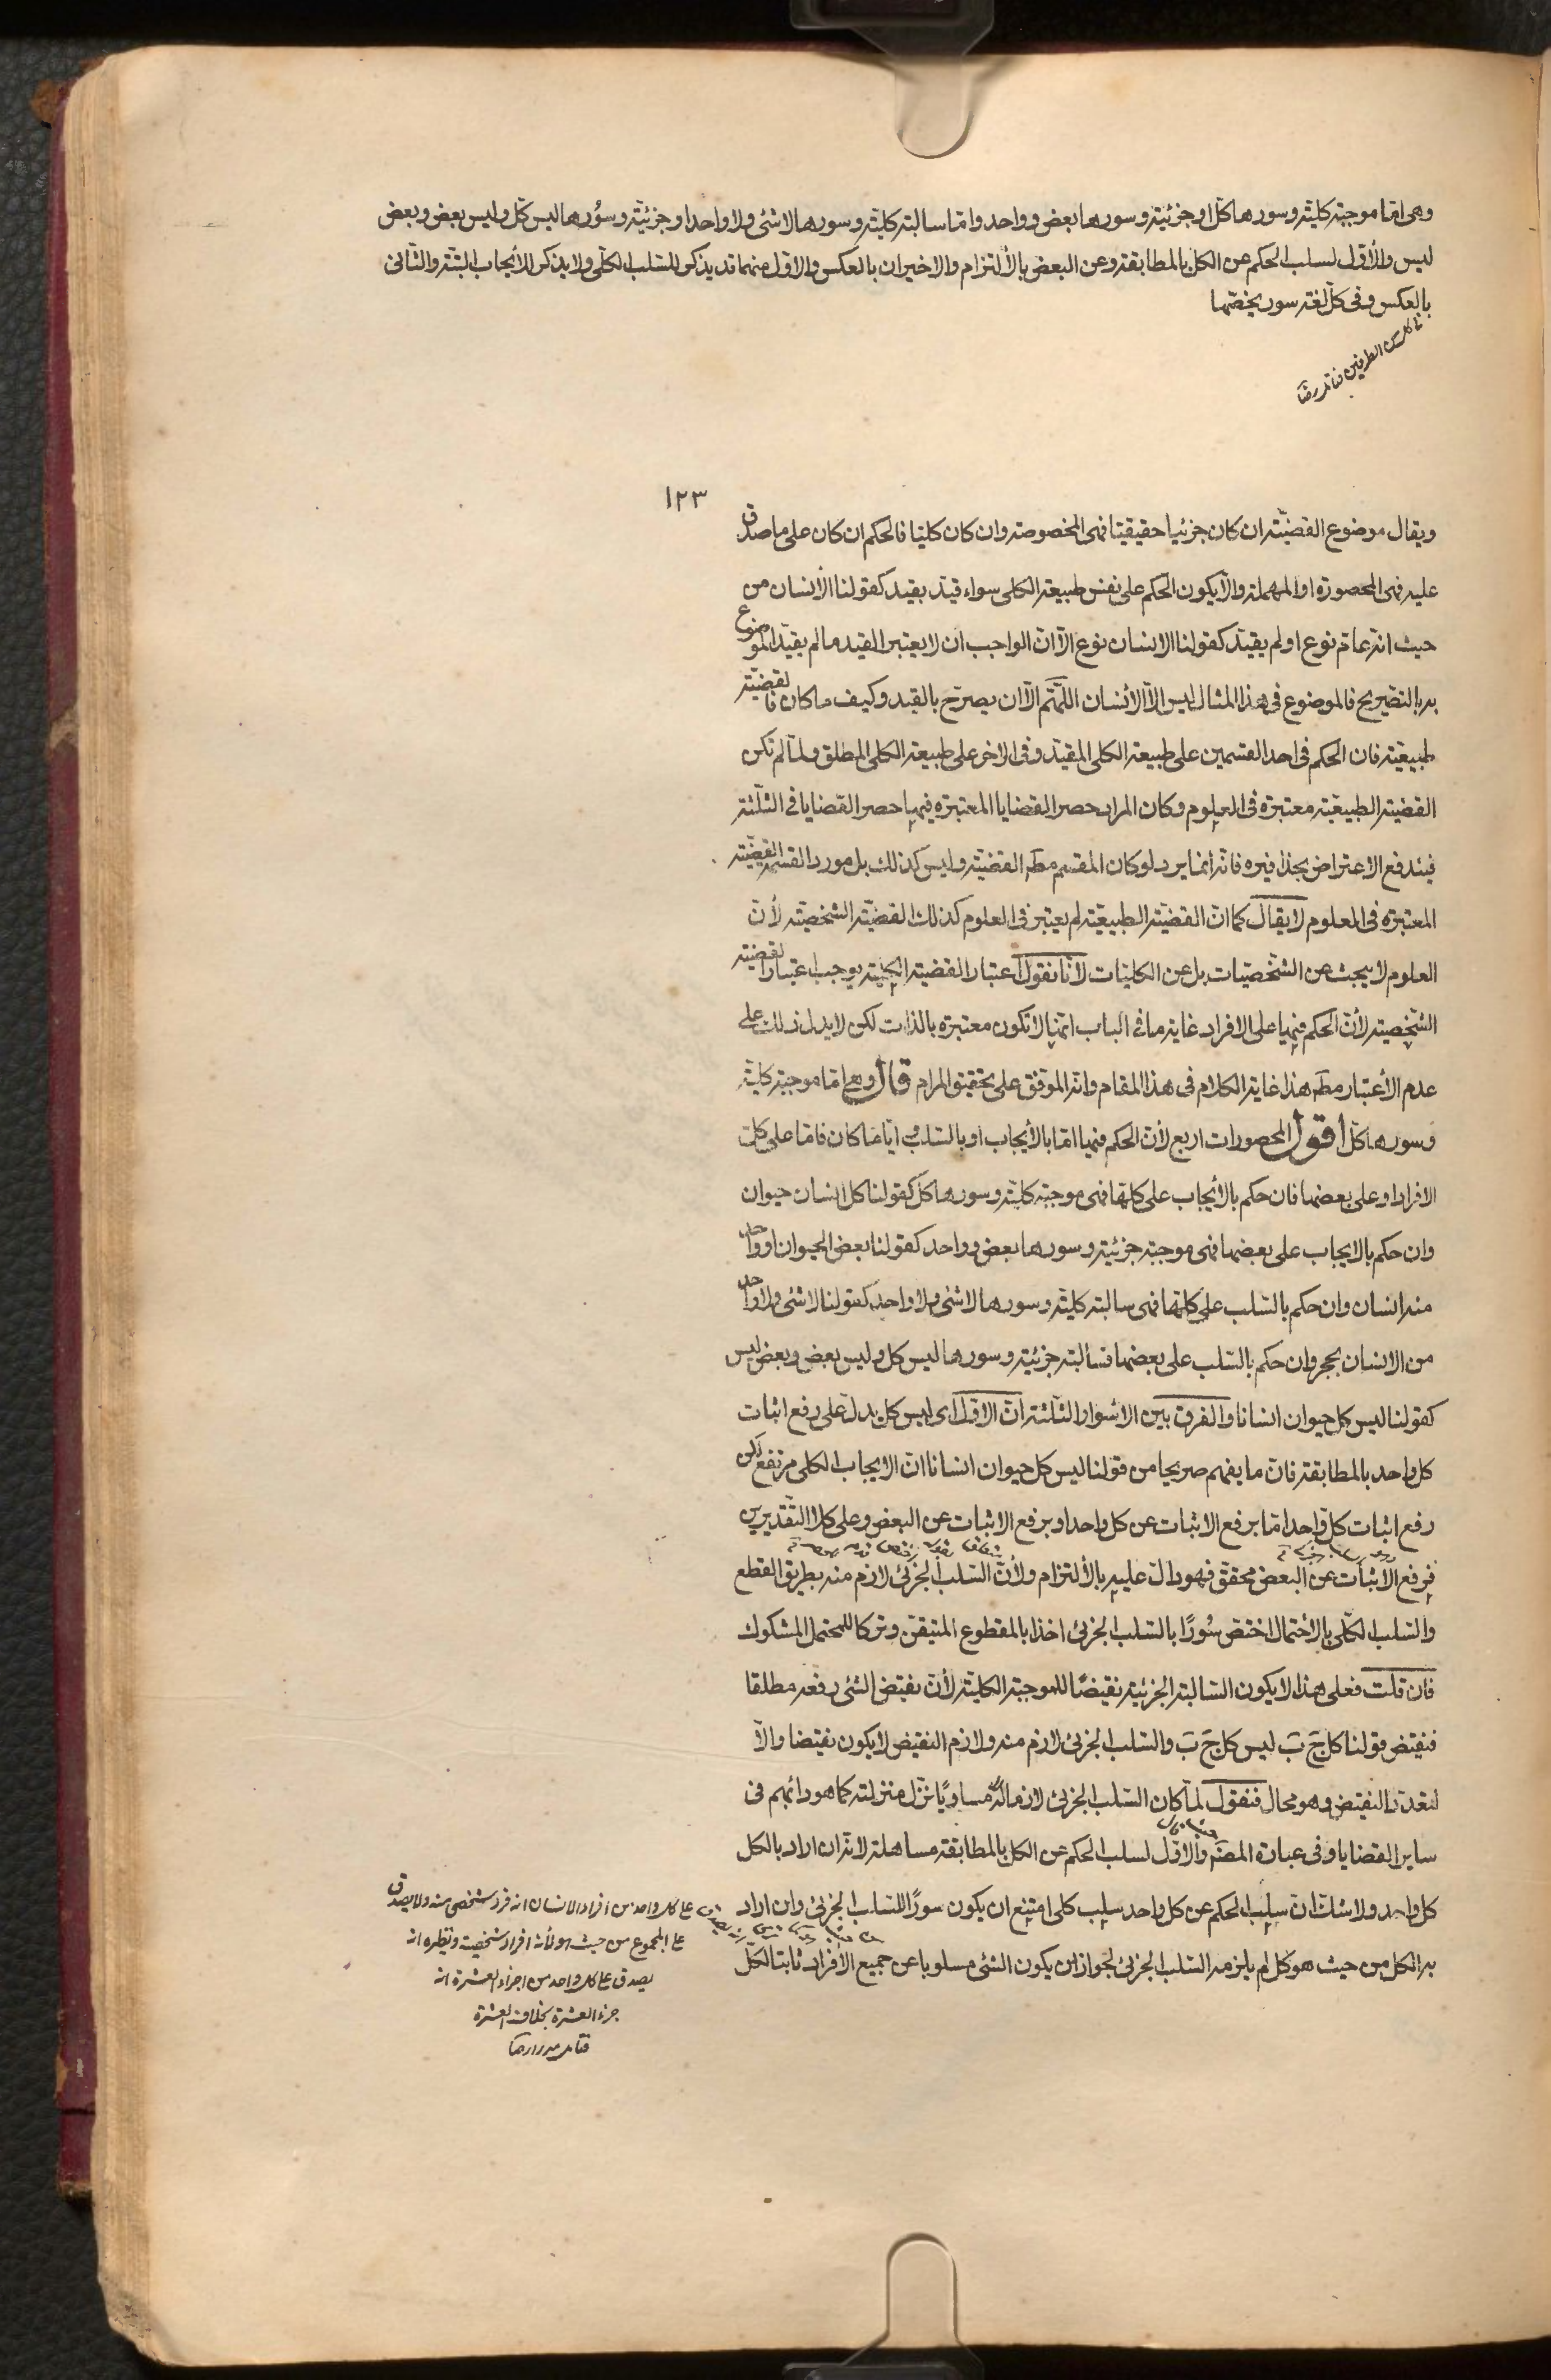 وهى اما موجبة كلية وسورها كل او جزئية وسورها بعض وواحد واما سالبة كلية وسورها لا شئ ولا واحد او جزئية وسورها ليس كل وليس بعض وبعض
ليس والأول لسلب الحكم عن الكل بالمطابقة وعن البعض بالألتزام والاخيران بالعكس والاول منهما قد يذكر للسلب الكلى ولا يذكر للأيجاب البتة والثانى
بالعكس وفى كل لغة سور يخصها
١٢٣
ويقال موضوع القضية ان كان جزئيا حقيقيا فهى المخصوصة وان كان كليا فالحكم ان كان على ما صدق
عليه فهى المحصورة او المهملة والا يكون الحكم على نفس طبيعة الكلى سواء قيد بقيد كقولنا الأنسان من
حيث انه عام نوع او لم يقيد كقولنا الانسان نوع الا ان الواجب ان لا يعتبر القيد ما لم يقيد الموضوع
به بالتصريح فالموضوع فى هذا المثال ليس الا الأنسان اللهم الا ان يصرح بالقيد وكيف ما كان فالقضية
طبيعية فان الحكم فى احد القسمين على طبيعة الكلى المقيد وفى الاخر على طبيعة الكلى المطلق ولما لم تكن
القضية الطبيعية معتبرة فى العلوم وكان المراد حصر القضايا المعتبرة فيها حصر القضايا فى الثلثة
فيندفع الاعتراض بحذافيره فانه أنما يرد لو كان المقسم مطه القضية وليس كذلك بل مورد القسمة القضية
المعتبرة فى العلوم لا يقال كما ان القضية الطبيعية لم يعتبر فى العلوم كذلك القضية الشخصية لأن
العلوم لا يبحث عن الشخصيات بل عن الكليات لأنا نقول اعتبار القضية الكلية يوجب اعتبار القضية
الشخصية لأن الحكم فيها على الافراد غاية ما فى الباب انها لا تكون معتبرة بالذات لكن لا يدل ذلك على
عدم الأعتبار مطه هذا غاية الكلام فى هذا المقام وانه الموفق على تحقيق المرام قال وهى اما موجبة كلية
وسورها كل أقول المحصورات اربع لأن الحكم فيها اما بالأيجاب او بالسلب وايا ما كان فاما على كل
الافراد او على بعضها فان حكم بالأيجاب على كلها فهى موجبة كلية وسورها كل كقولنا كل انسان حيوان
وان حكم بالايجاب على بعضها فهى موجبة جزئية وسورها بعض وواحد كقولنا بعض الحيوان او واحد
منه انسان وان حكم بالسلب على كلها فهى سالبة كلية وسورها لا شئ ولا واحد كقولنا لا شئ ولا واحد
من الانسان بحجر وان حكم بالسلب على بعضها فسالبة جزئية وسورها ليس كل وليس بعض وبعض ليس
كقولنا ليس كل حيوان انسانا والفرق بين الاسوار الثلثة ان الاول اى ليس كل يدل على رفع اثبات
كل واحد بالمطابقة فان ما يفهم صريحا من قولنا ليس كل حيوان انسانا ان الايجاب الكلى مرتفع لكن
رفع اثبات كل واحد اما برفع الاثبات عن كل واحد او برفع الاثبات عن البعض وعلى كلا التقديرين
فرفع الأثبات عن البعض محقق فهو دال عليه بالألتزام ولأن السلب الجزئى لازم منه بطريق القطع
والسلب الكلى بالأحتمال اختص سورًا بالسلب الجزئى اخذا بالمقطوع المتيقن وتركا للمحتمل المشكوك
فان قلت فعلى هذا لا يكون السالبة الجزئية نقيضًا للموجبة الكلية لأن نقيض الشئ رفعه مطلقا
فنقيض قولنا كل ج ب ليس كل ج ب والسلب الجزئى لازم منه ولازم النقيض لا يكون نقيضا والا
لتعدد النقيض وهو محال فنقول لما كان السلب الجزئى لازما له مساويًا نزل منزلته كما هو دأبهم فى
ساير القضايا وفى عبارة المصنه والاول لسلب الحكم عن الكل بالمطابقة مساهلة لانه ان اراد بالكل
كل واحد ولا شك ان سلب الحكم عن كل واحد سلب كلى امتنع ان يكون سورًا للسلب الجزئى وان اراد
به الكل من حيث هو كل لم يلزمه السلب الجزئى لجواز ان يكون الشئ مسلوبا عن جميع الأفراد ثابتا لكل
على كل واحد من افراد الانسان انه فرد شخصى منه ولا يصدق
على المجموع من حيث هو لأنه افراد شخصية ونظيره انه
يصدق على كل واحد من اجزاء العشرة انه
جزء العشرة بخلاف العشرة